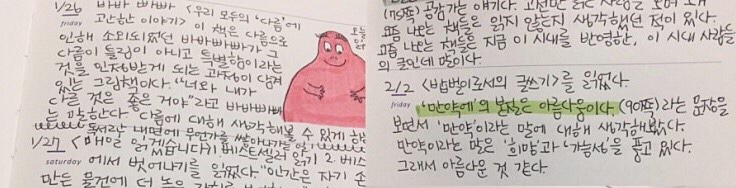 1/26 바바 빠빠 <우리 모두의 '다름'에
friday 고난한 이야기> 이 책은 다름으로
인해 소외되었던 바바빠빠가 그
다름이 틀림이 아니고 특별함이라는
것을 인정받게 되는 과정이 담겨
있는 그림책이다. "너와 내가
다른 것은 좋은 거야"라고 바바빠빠
는 말한다. 다름에 대해 생각해볼 수 있게 해
독서란 내면에 무언가를 쌓아가는 일
1/27 <매일 읽겠습니다> 베스트셀러 읽기 2 베스
saturday 에서 벗어나기를 읽었다. "인간은 자기 손
만든 물건에 더 높은
(115쪽) 공감가는 얘기다. 고전만 읽는
요즘 나오는 책들은 읽지 않는지 생각했던 적이 있다.
요즘 나오는 책들은 지금 이 시대를 반영한, 이 시대 사람들
의 글인데 말이다.
2/2 <밥벌이로서의 글쓰기>를 읽었다.
friday '만약에'의 본질은 아름다움이다. (90쪽)라는 문장을
보면서 '만약'이라는 말에 대해 생각해봤다.
만약이라는 말은 '희망'과 '가능성'을 품고 있다.
그래서 아름다운 것 같다.